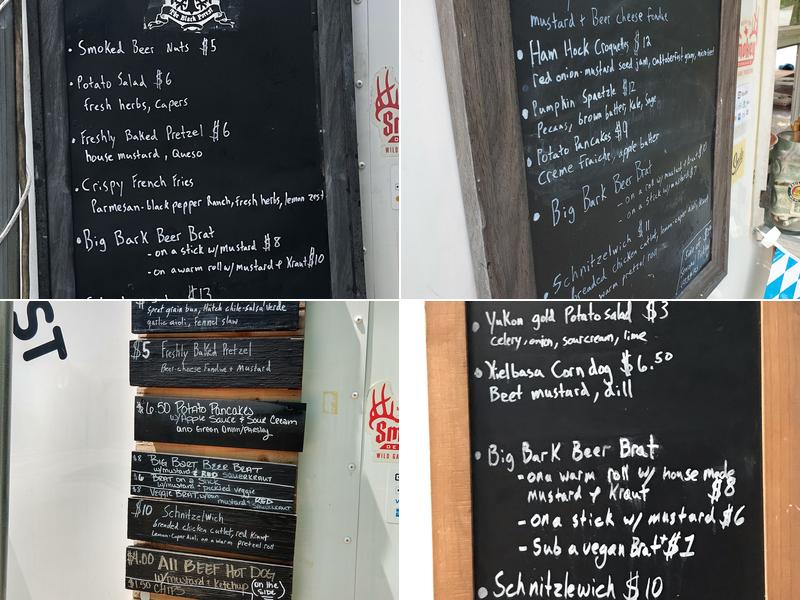 The Black Forest
• Smoked Beer Nuts $5
• Potato Salad $6
Fresh herbs, Capers
• Freshly Baked Pretzel $6
house mustard, Queso
• Crispy French Fries
Parmesan-black pepper Ranch, fresh herbs, lemon zest
• Big Bark Beer Brat
- on a stick w/ mustard $8
- on a warm roll w/ mustard & Kraut $10
$13
mustard & Beer cheese fondue
• Ham Hock Croquettes $12
red onion-mustard seed jam,
• Pumpkin Spaetzle $12
Pecans, brown butter, Kale, Sage
• Potato Pancakes $9
Creme Fraiche, apple butter
• Big Bark Beer Brat
- on a roll w/ mustard & kraut $10
- on a stick w/ mustard $7
• Schnitzelwich $11
breaded chicken cutlet, lemon-caper aioli, Kraut
warm pretzel roll
ST
spent grain bun, Hatch chile-salsa verde
garlic aioli, fennel slaw
$5 Freshly Baked Pretzel
Beer-cheese Fondue + Mustard
$6.50 Potato Pancakes
w/ Apple Sauce & Sour Cream
and Green Onion/Parsley
$8 Big Bart Beer Brat
w/mustard & RED SAUERKRAUT
$6 Brat on a Stick
w/mustard + pickled veggie
$8 Veggie Brat w/bun
mustard + RED SAUERKRAUT
$10 Schnitzelwich
breaded chicken cutlet, red Kraut
lemon-caper aioli on a warm pretzel roll
$4.00 All Beef Hot Dog
w/mustard + ketchup (on the SIDE)
$1.50 CHIPS
WILD GA
• Yukon gold Potato salad $3
celery, onion, sourcream, lime
• Kielbasa Corn dog $6.50
Beet mustard, dill
• Big Bark Beer Brat
- on a warm roll w/ house made
mustard & Kraut $8
- on a stick w/ mustard $6
- Sub a vegan Brat +$1
• Schnitzlewich $10